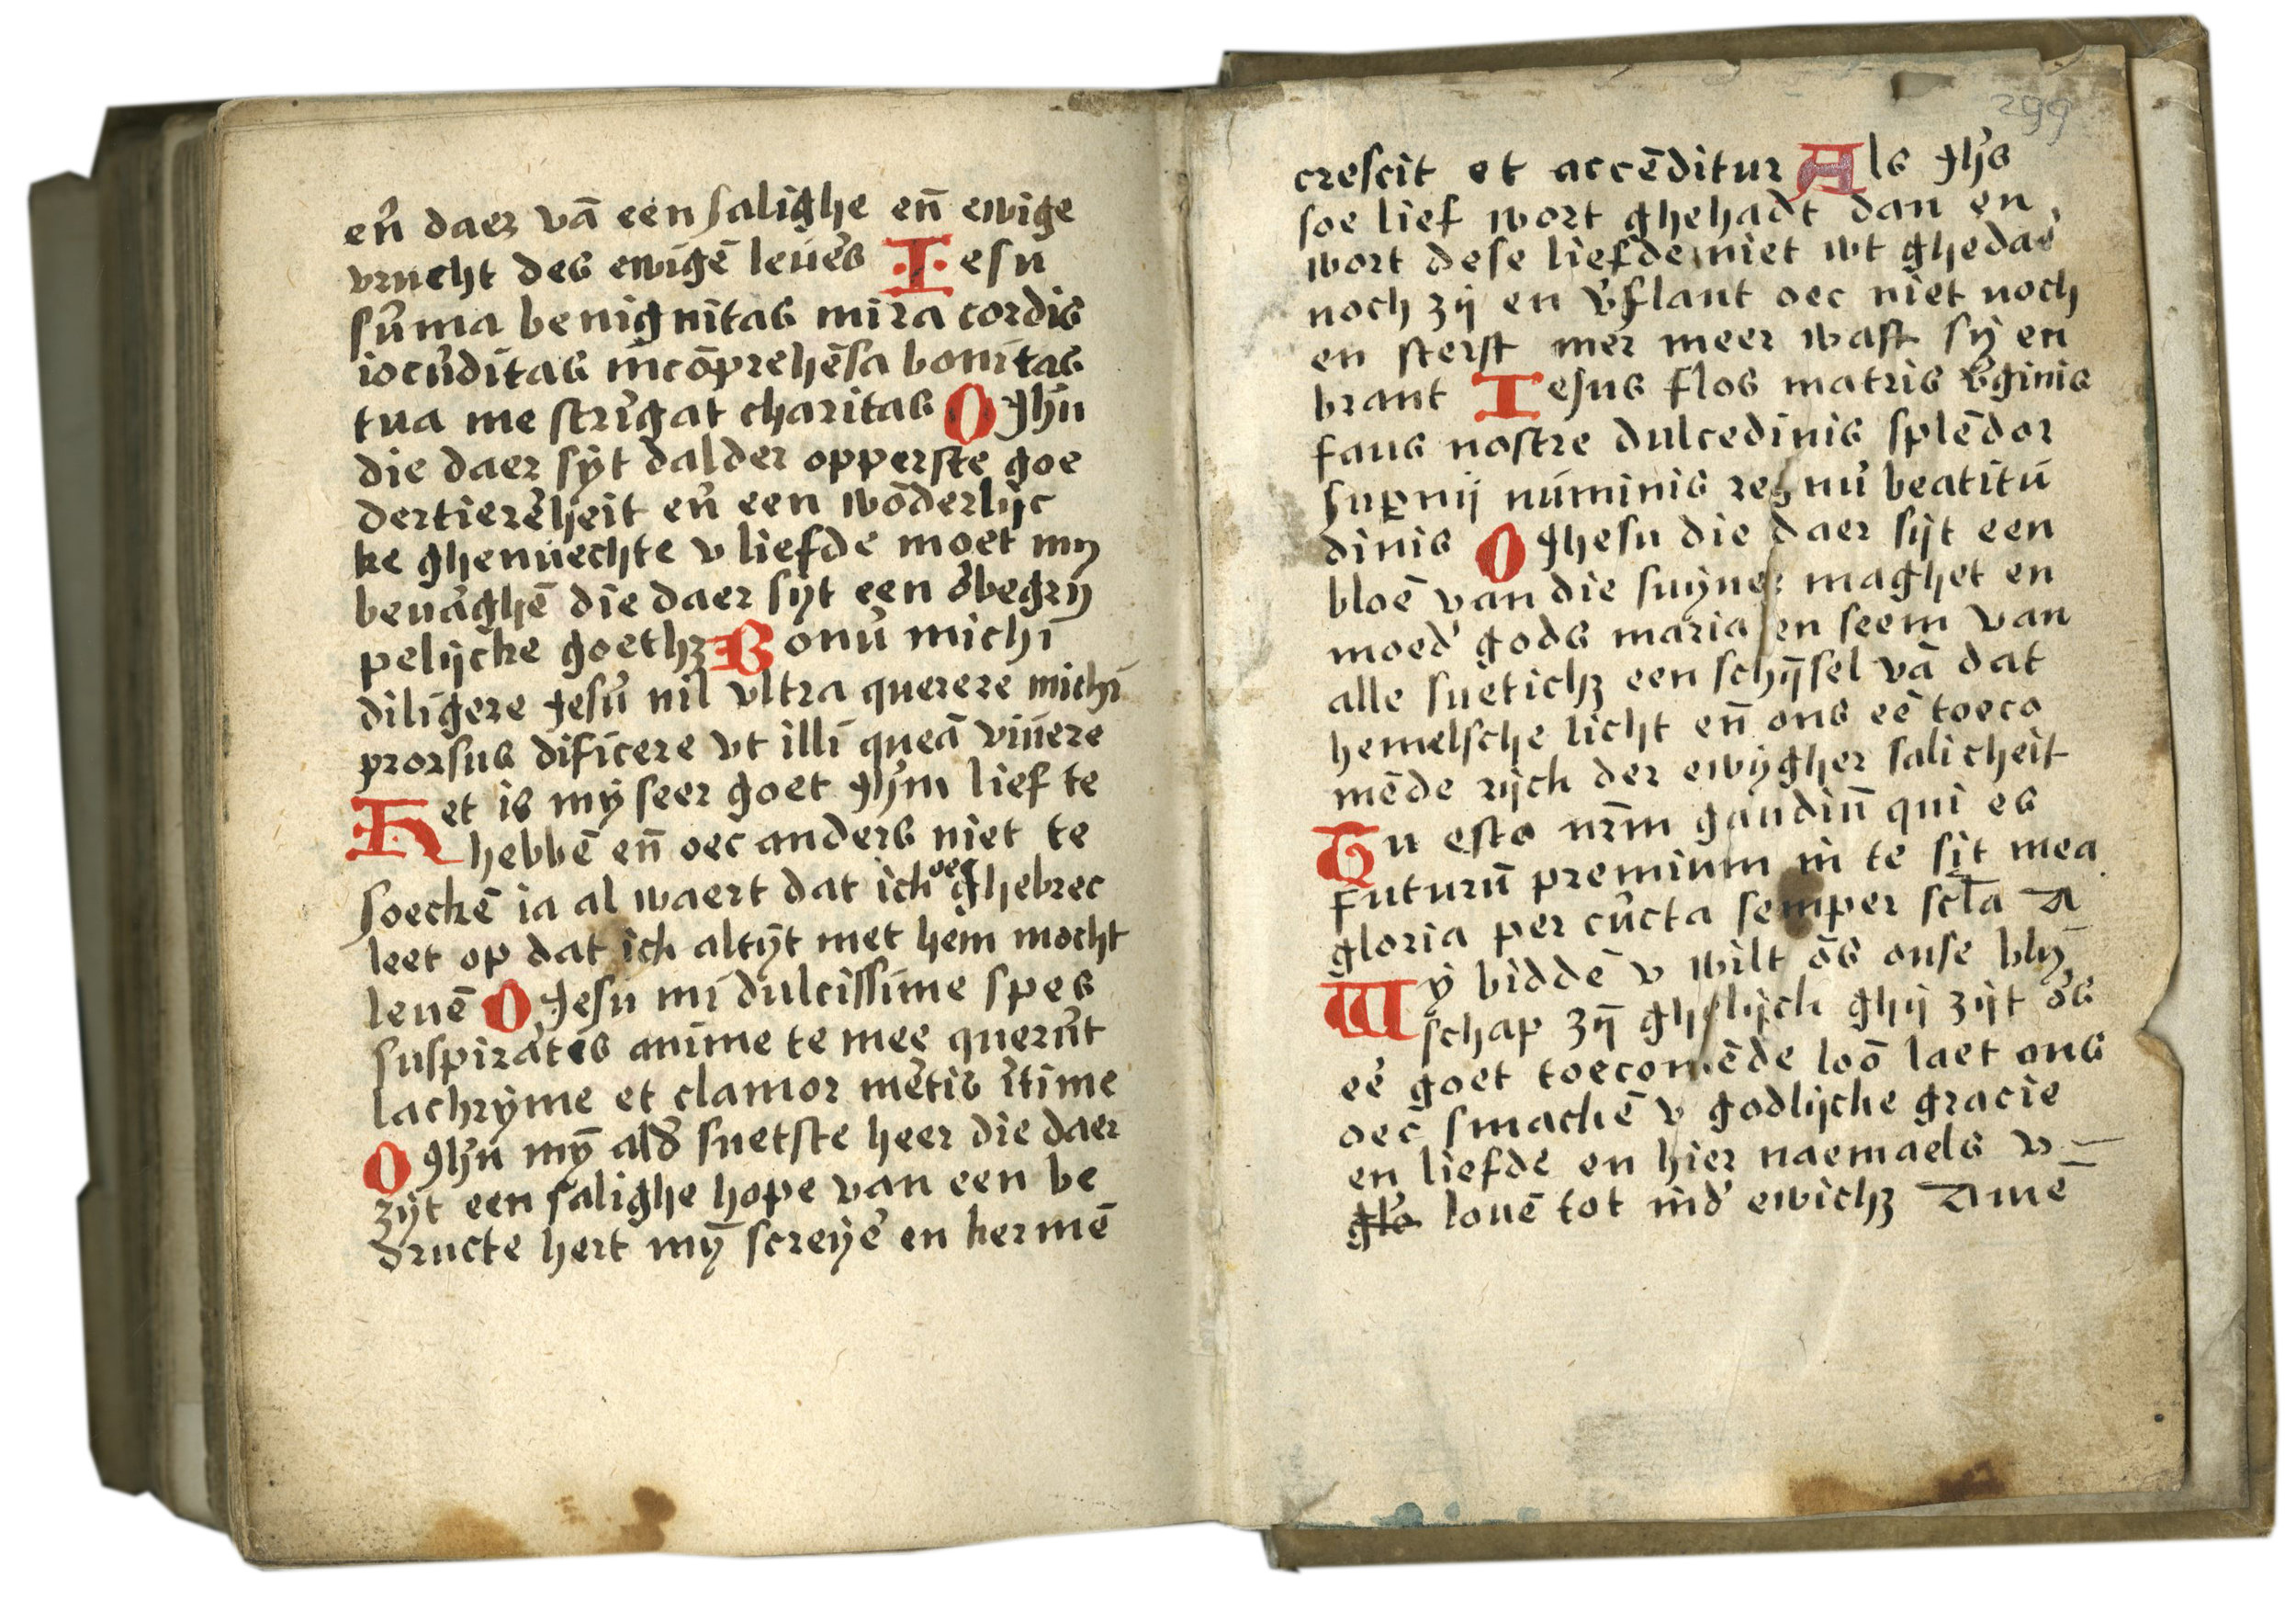 en̄ daer vā een salighe en̄ ewige
vrucht des ewigē leuēs Iesu
sūma benignitas mira cordis
iocūditas incōprehēsa bonitas
tua me strīgat charitas O Jhū
die daer sijt dalder opperste goe
dertierēheit en̄ een wōderlijc
ke ghenuechte v liefde moet my
beuāghē die daer sijt een ōbegrij
pelijcke goethꝫ Bonū michi
diligere Jesū nil vltra querere michi
prorsus dificere vt illi queā viuere
Het is mij seer goet Jhm̄ lief te
hebbē en̄ oec anders niet te
soeckē ia al waert dat ich oec ghebrec
leet op dat ich altijt met hem mocht
leuē O Jesu mi dulcissime spes
suspirātis anime te mee querūt
lachrijme et clamor mētis ītime
O Jhū mȳ alđ suetste heer die daer
zijt een salighe hope van een be
dructe hert mȳ screijē en kermē
299
crescit et accēditur Als Jhs̄
soe lief wort ghehadt dan en
wort dese liefde niet wt ghedaē
noch zij en v̄flaut oec niet noch
en sterft mer meer wast sij en
brant Iesus flos matris v̄ginis
faus nostre dulcedinis splēdor
suꝑnij numinis regnū beatitu
dinis O Jhesu die daer sijt een
bloē van die suijuer maghet en
moed̄ gods maria en seem van
alle suetichꝫ een schijsel vā dat
hemelsche licht en̄ ons eē toeco
mēde rijch der ewijgher salicheit
Tu esto nr̄m gaudiū qui es
futurū premium in te sit mea
gloria per cūcta semper scl̄a A
Wij biddē v wilt ōs onse blij
schap zȳ ghelijch ghij zijt ōs
eē goet toecomēde loō laet ons
oec smackē v godlijcke gracie
en liefde en hier naemaels v
glo louē tot ind̄ ewichꝫ Amē